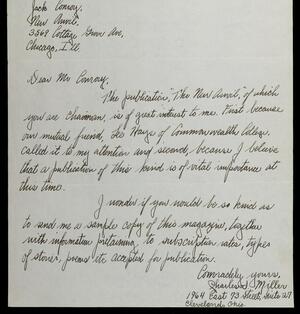 Jack Conroy,
New Anvil,
3569 Cottage Grove Ave,
Chicago, Ill.
Dear Mr Conroy,
The publication, "The New Anvil", of which
you are chairman, is of great interest to me. First because
our mutual friend, Lee Hays of Commonwealth College
called it to my attention and second, because I believe
that a publication of this kind is of vital importance at
this time.
I wonder if you would be so kind as
to send me a sample copy of this magazine, together
with information pertaining to subscription rates, types
of stories, poems etc accepted for publication.
Comradely yours,
Miller
1964 East 73 Street, Suite 217
Cleveland, Ohio